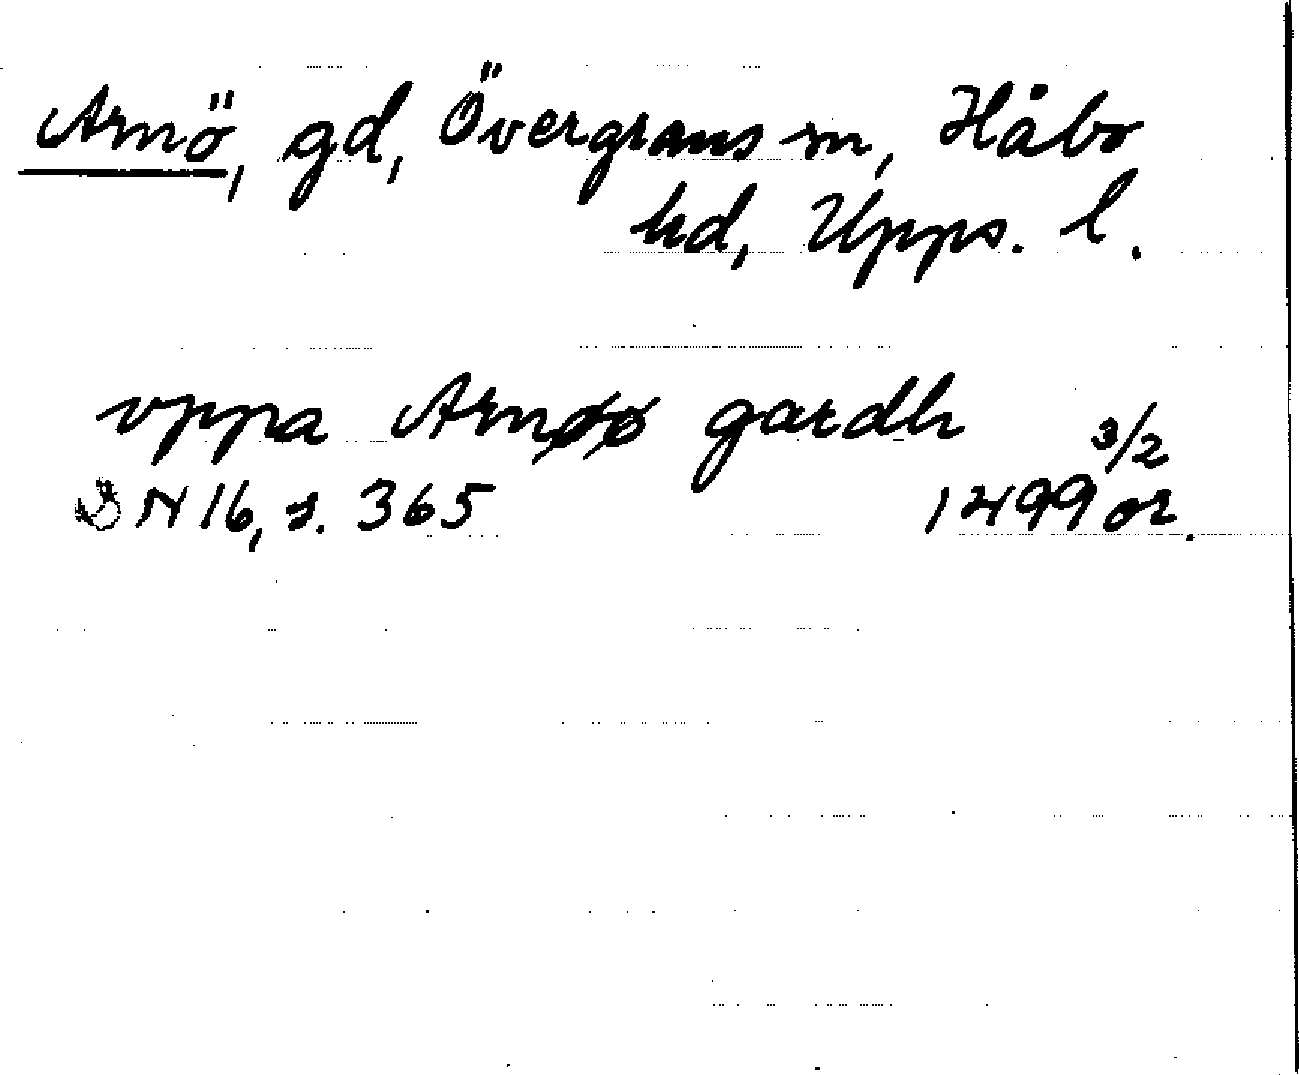 Arnö, gd, Övergrans sn, Håbo
hd, Upps. l.
vppa Arnøø gardh
3/2
DN 16, s. 365 1499 or.